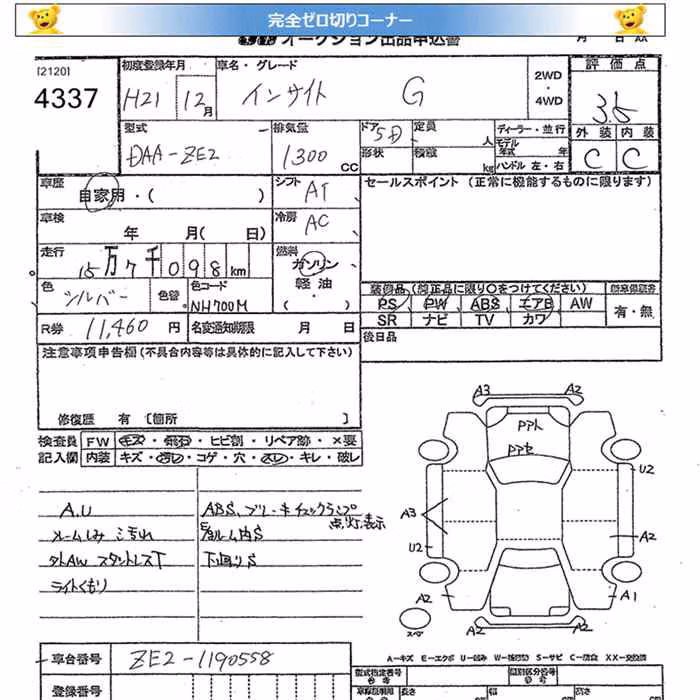 完全ゼロ切りコーナー
オークション出品申込書
月 日
[2120]
4337
初度登録年月
H21 12月
車名・グレード
インサイト G
2WD
・
4WD
評価点
3.5
型式
DAA-ZE2
排気量
1300 CC
ドア 5D
定員 人
形状
積載 kg
ディーラー・並行
モデル年式 年
ハンドル 左・右
外装 内装
C C
車歴
自家用・( )
シフト AT
セールスポイント (正常に機能するものに限ります)
車検
年 月( 日)
冷房 AC
走行
15万7千098km
燃料
ガソリン
軽油
・
( )
色 シルバー
色替
色コード NH700M
装備品(純正品に限り○をつけてください)
新車保証書
PS PW ABS エアB AW
SR ナビ TV カワ
有・無
R券 11,460 円
名変通知期限 月 日
後日品
注意事項申告欄(不具合内容等は具体的に記入して下さい)
修復歴 有 [箇所 ]
検査員 FW キズ・飛石・ヒビ割・リペア跡・×要
記入欄 内装 キズ・汚レ・コゲ・穴・スレ・キレ・破レ
A.U
ルームしみ 汚れ
タトAW スタットレスT
ライトくもり
ABS、ブレーキチェックランプ
点灯表示
E/gルーム内S
下回りS
A3 A2
Pアト
Pアセ
U2
A3
A2
U2
A2 A1
スペア
A2 A2
A-キズ E-エクボ U-凹み W-補修跡 S-サビ C-腐食 XX-交換済
車台番号 ZE2-1190558
登録番号
型式指定番号
類別区分番号
長さ
幅
高さ